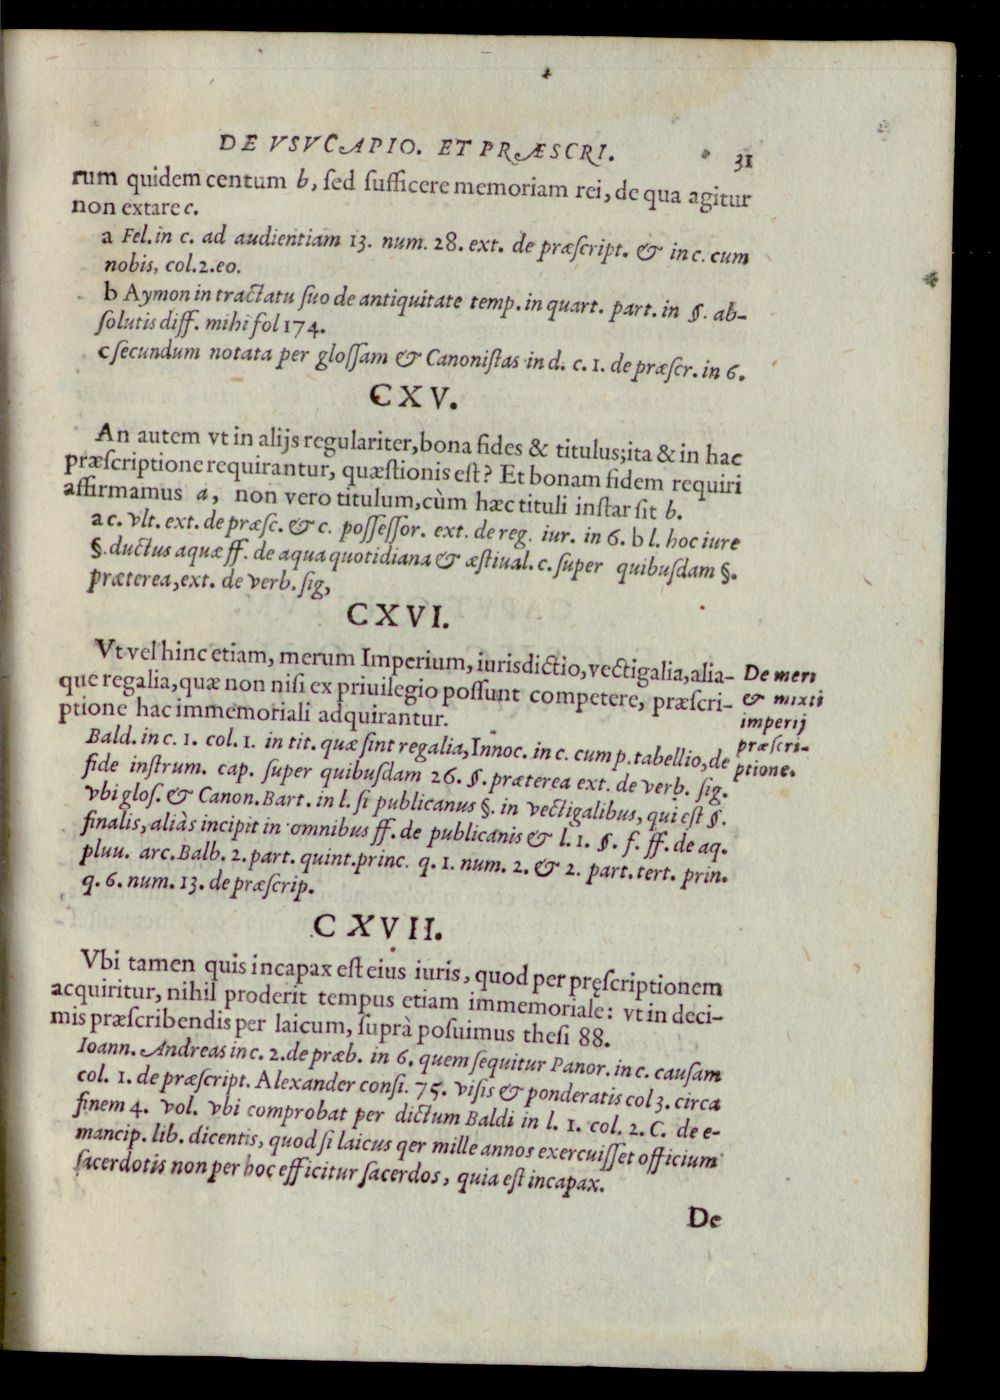 DE VSVCAPIO. ET PRÆSCRI. 31
rum quidem centum b, sed sufficere memoriam rei, de qua agitur
non extare c.
a Fel. in c. ad audientiam 13. num. 28. ext. de præscript. & in c. cum
nobis, col. 2. eo.
b Aymon in tractatu suo de antiquitate temp. in quart. part. in §. ab-
solutis diff. mihi fol 174.
c secundum notata per glossam & Canonistas in d. c. 1. de præscr. in 6.
CXV.
An autem vt in alijs regulariter, bona fides & titulus; ita & in hac
præscriptione requirantur, quæstionis est? Et bonam fidem requiri
affirmamus a, non vero titulum, cùm hæc tituli instar sit b.
a c. vlt. ext. de præsc. & c. possessor. ext. de reg. iur. in 6. b l. hoc iure
§. ductus aquæ ff. de aqua quotidiana & æstiual. c. super quibusdam §.
præterea, ext. de verb. sig,
CXVI.
Vt vel hinc etiam, merum Imperium, iurisdictio, vectigalia, alia-
que regalia, quæ non nisi ex priuilegio possunt competere, præscri-
ptione hac immemoriali adquirantur.
De meri
& mixti
imperij
præscri-
ptione.
Bald. in c. 1. col. 1. in tit. quæ sint regalia, Innoc. in c. cum p. tabellio, de
fide instrum. cap. super quibusdam 26. §. præterea ext. de verb. sig.
vbi glos. & Canon. Bart. in l. si publicanus §. in vectigalibus, qui est §.
finalis, aliàs incipit in omnibus ff. de publicanis & l. 1. §. f. ff. de aq.
pluu. arc. Balb. 2. part. quint. princ. q. 1. num. 2. & 2. part. tert. prin.
q. 6. num. 13. de præscrip.
CXVII.
Vbi tamen quis incapax est eius iuris, quod per pręscriptionem
acquiritur, nihil proderit tempus etiam immemoriale: vt in deci-
mis præscribendis per laicum, suprà posuimus thesi 88.
Ioann. Andreas in c. 2. de præb. in 6. quem sequitur Panor. in c. causam
col. 1. de præscript. Alexander consi. 75. visis & ponderatis col 3. circa
finem 4. vol. vbi comprobat per dictum Baldi in l. 1. col. 2. C. de e-
mancip. lib. dicentis, quod si laicus qer mille annos exercuisset officium
sacerdotis non per hoc efficitur sacerdos, quia est incapax.
De